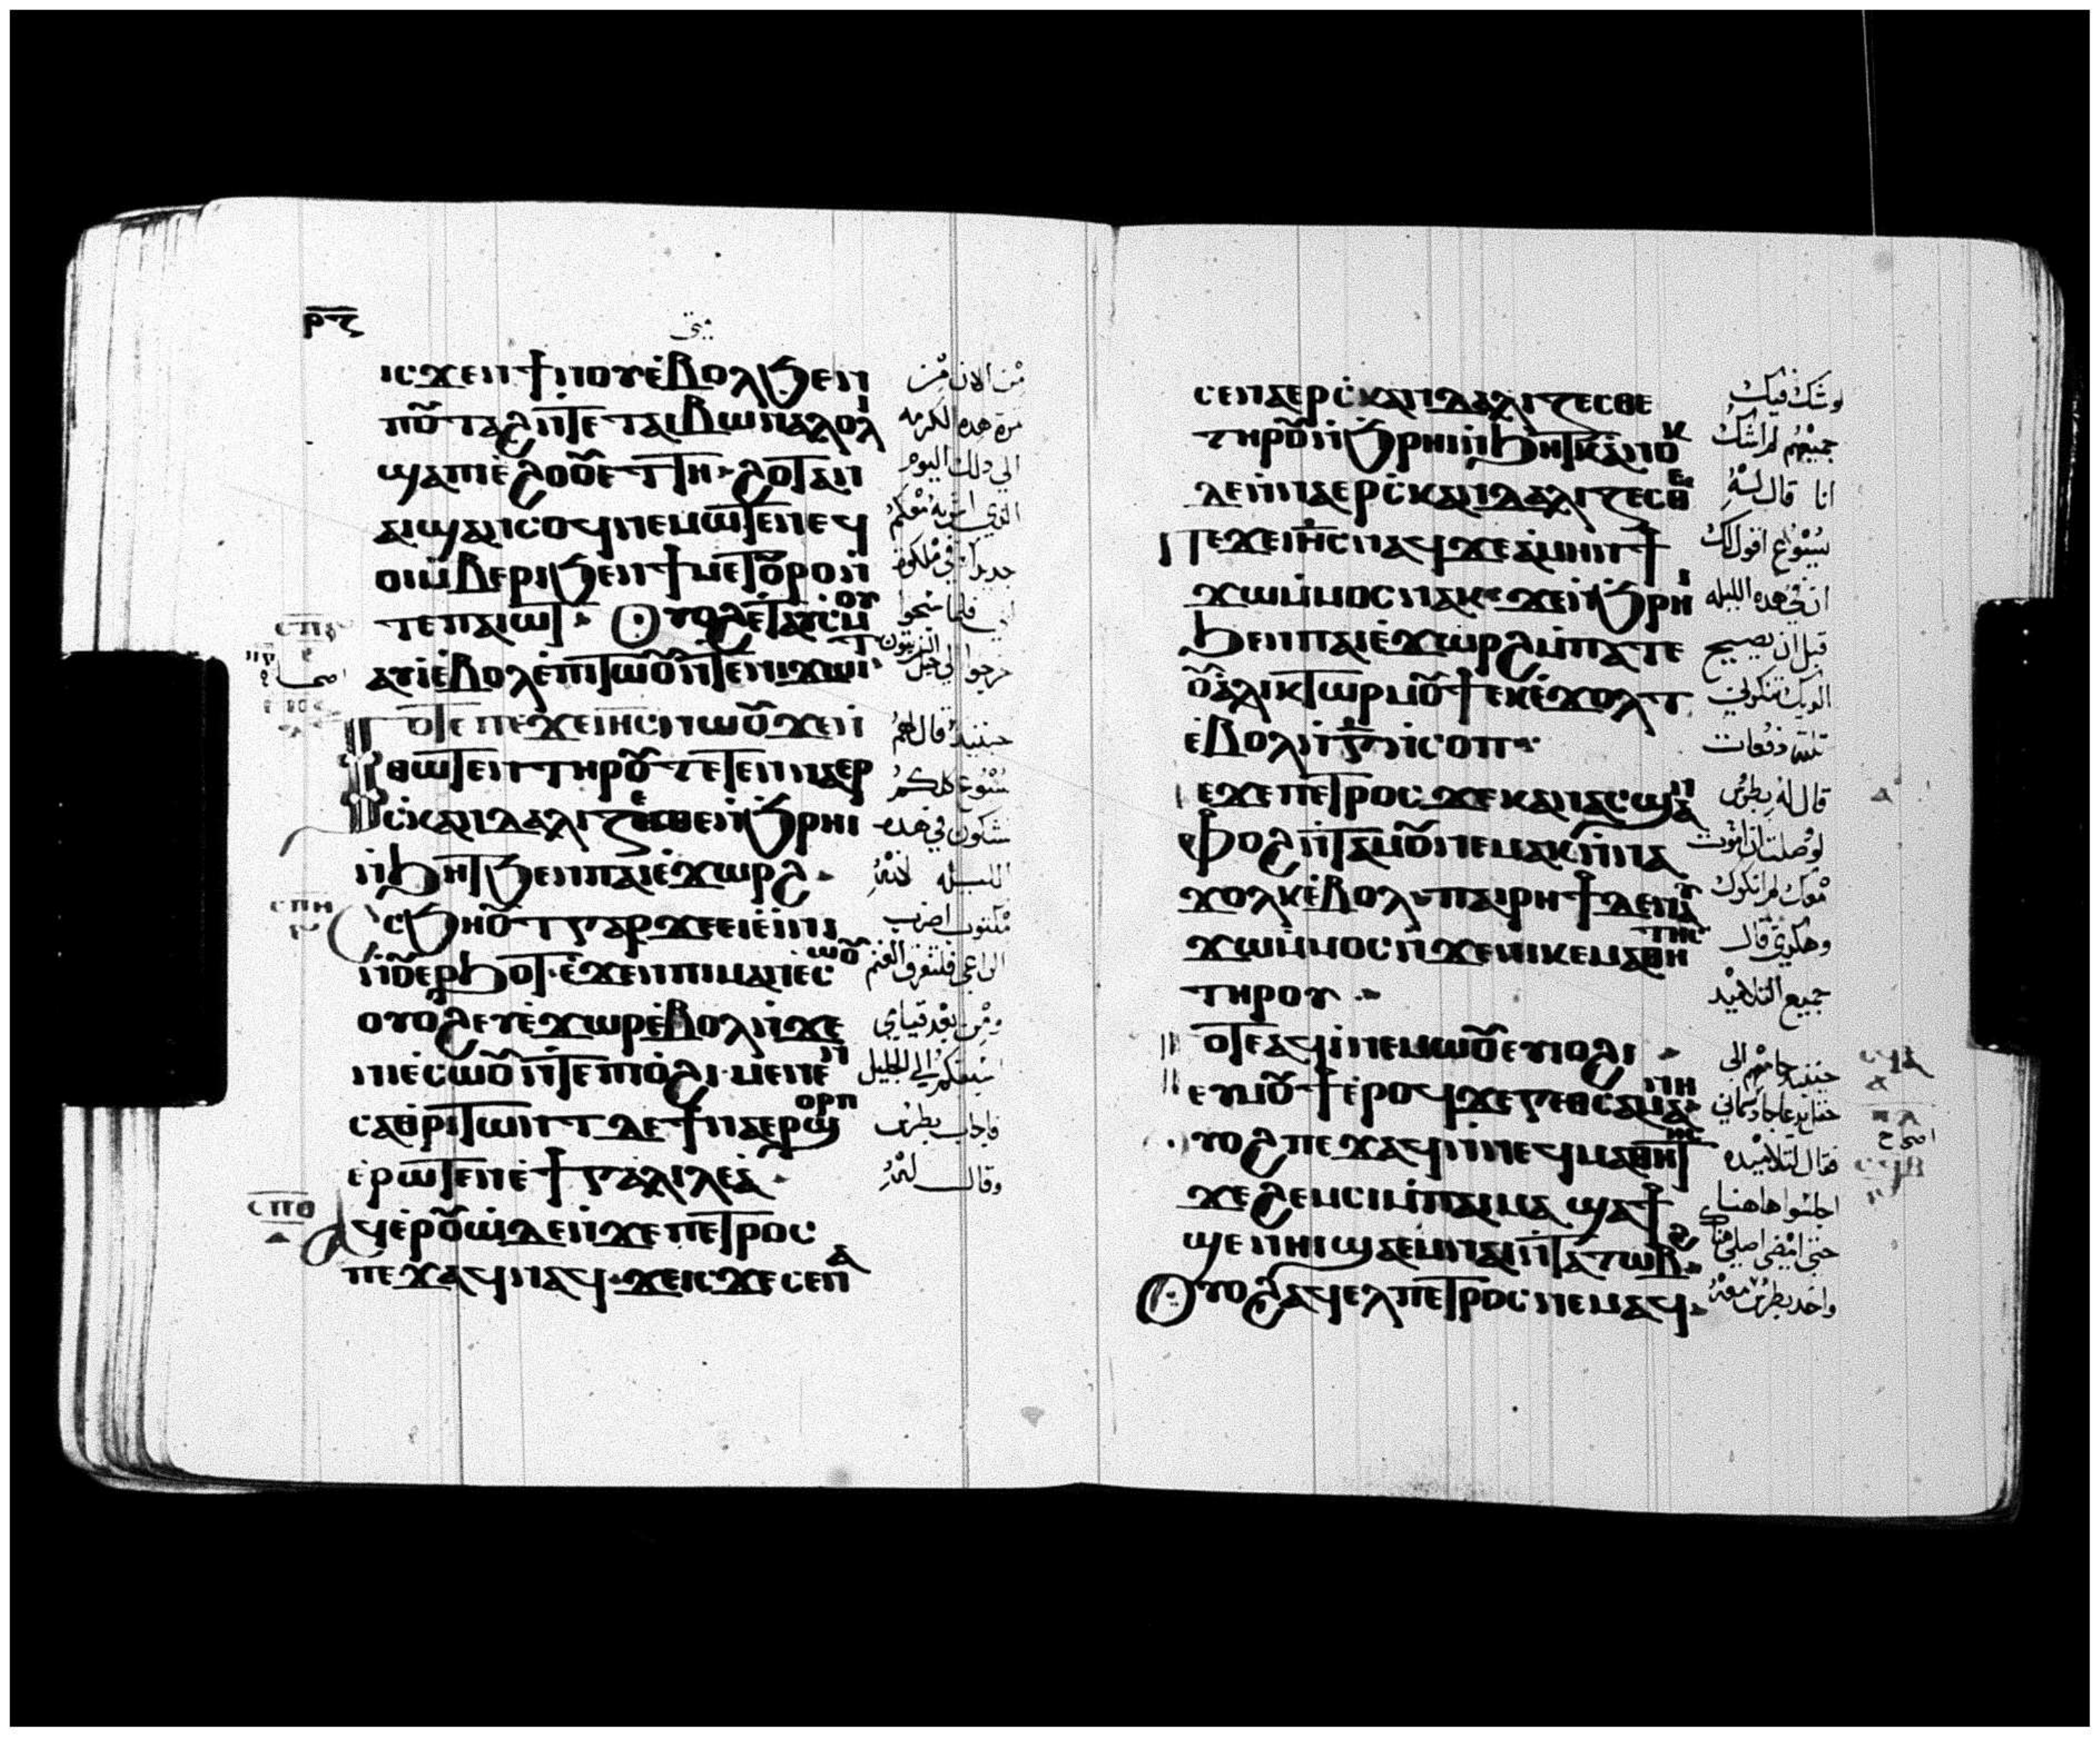 ⲣⲋ
ⲓⲥϫⲉⲛϯⲛⲟⲩⲉ̀ⲃⲟⲗϧⲉⲛ
ⲡⲟⲩⲧⲁϩⲛ̀ⲧⲉⲧⲁⲓⲃⲱⲛⲁⲗⲟⲗⲓ
ϣⲁⲡⲓⲉ̀ϩⲟⲟⲩⲉⲧⲧⲏ ϩⲟⲧⲁⲛ
ⲁⲓϣⲁⲛⲥⲟϥⲛⲉⲙⲱⲧⲉⲛⲉϥ
ⲟⲓⲙ̀ⲃⲉⲣⲓϧⲉⲛϯⲙⲉⲧⲟⲩⲣⲟⲛ̀
ⲧⲉⲡⲁⲓⲱⲧ Ⲟⲩⲟϩⲉⲧⲁⲩⲥⲙⲟⲩ
ⲁⲩⲓ̀ⲉ̀ⲃⲟⲗⲉ̀ⲡⲓⲧⲱⲟⲩⲛ̀ⲧⲉⲛⲓϫⲱⲓⲧ
Ⲧⲟⲧⲉⲡⲉϫⲉⲓⲏⲥⲛⲱⲟⲩϫⲉⲛ̀
ⲑⲱⲧⲉⲛⲧⲏⲣⲟⲩⲧⲉⲧⲉⲛⲛⲁⲉⲣ
ⲥ̀ⲕⲁⲛⲇⲁⲗⲓⲍⲉⲥⲑⲉⲛ̀ϧⲣⲏⲓ
ⲛ̀ϧⲏⲧϧⲉⲛⲡⲁⲓⲉ̀ϫⲱⲣϩ
ⲥϧⲏⲟⲩⲧⲅⲁⲣϫⲉⲉⲓⲉ̀ⲓⲛⲓ
ⲛ̀ⲟⲩⲉⲣϧⲟⲧⲉ̀ϫⲉⲛⲡⲓⲙⲁⲛⲉⲥⲱⲟⲩ
ⲟⲩⲟϩⲉⲩⲉ̀ϫⲱⲣⲉ̀ⲃⲟⲗⲛ̀ϫⲉ
ⲛⲓⲉⲥⲱⲟⲩⲛ̀ⲧⲉⲡⲓⲟ̀ϩⲓ ⲙⲉⲛⲉⲛ
ⲥⲁⲑⲣⲓⲧⲱⲛⲧⲇⲉϯⲛⲁⲉⲣϣⲟⲣⲡ
ⲉ̀ⲣⲱⲧⲉⲛⲉ̀ϯⲅⲁⲗⲓⲗⲉⲁ
Ⲁϥⲉ̀ⲣⲟⲩⲱ̀ⲇⲉⲛ̀ϫⲉⲡⲉⲧⲣⲟⲥ
ⲡⲉϫⲁϥⲛⲁϥ ϫⲉⲓⲥϫⲉⲥⲉⲛⲁ
من الان من
مرة هده الكرمه
الي دلك اليوم
الذي اشربه معكم
جديدا في ملكوت
ابي فلما سبحوا
خرجوا الي جبل الزيتون
حينئد قال لهم
يسوع كلكم
تشكون في هده
الليله لانه
مكتوب اضرب
الراعي فتتفرق الغنم
ومن بعد قيامي
اسبقكم الي الجليل
فاجاب بطرس
وقال له
ⲥⲡⲏ
ⲥⲡⲑ
ⲁ
ⲥⲉⲛⲁⲉⲣⲥ̀ⲕⲁⲛⲇⲁⲗⲓⲍⲉⲥⲑⲉ
ⲧⲏⲣⲟⲩⲛ̀ϧⲣⲏⲓⲛ̀ϧⲏⲧⲕⲁⲛⲟⲕ
ⲇⲉⲛ̀ⲛⲁⲉⲣⲥ̀ⲕⲁⲛⲇⲁⲗⲓⲍⲉⲥⲑⲉ
Ⲡⲉϫⲉⲓⲏⲥⲛⲁϥϫⲉⲁ̀ⲙⲏⲛϯ
ϫⲱⲙ̀ⲙⲟⲥⲛⲁⲕ ϫⲉⲛ̀ϧⲣⲏⲓ
ϧⲉⲛⲡⲁⲓⲉ̀ϫⲱⲣϩⲙ̀ⲡⲁⲧⲉ
ⲟⲩⲁ̀ⲗⲓⲕⲧⲱⲣⲙⲟⲩϯⲉⲕⲉ̀ϫⲟⲗⲧ
ⲉ̀ⲃⲟⲗⲛ̀ⲅ̅ⲛ̀ⲥⲟⲡ
Ⲡⲉϫⲉⲡⲉⲧⲣⲟⲥϫⲉⲕⲁⲛⲁⲥϣⲁⲛ
ⲫⲟϩⲛ̀ⲧⲁⲙⲟⲩⲛⲉⲙⲁⲕⲛ̀ⲛⲁ
ϫⲟⲗⲕⲉ̀ⲃⲟⲗ ⲡⲁⲓⲣⲏϯⲇⲉⲛⲁⲩ
ϫⲱⲙ̀ⲙⲟⲥⲛ̀ϫⲉⲛⲓⲕⲉⲙⲁⲑⲏⲧⲏⲥ
ⲧⲏⲣⲟⲩ
Ⲧⲟⲧⲉⲁϥⲓ̀ⲛⲉⲙⲱⲟⲩⲉⲩⲓⲟϩⲓ
ⲉⲩⲙⲟⲩϯⲉ̀ⲣⲟϥϫⲉⲅⲉⲑⲥⲁⲙⲁⲛⲏ
ⲟⲩⲟϩⲡⲉϫⲁϥⲛ̀ⲛⲉϥⲙⲁⲑⲏⲧⲏⲥ
ϫⲉϩⲉⲙⲥⲓⲙ̀ⲡⲁⲓⲙⲁ ϣⲁϯ
ϣⲉⲛⲏⲓϣⲁⲉⲙⲛⲁⲓⲛ̀ⲧⲁⲧⲱⲃϩ
Ⲟⲩⲟϩⲁϥⲉⲗⲡⲉⲧⲣⲟⲥⲛⲉⲙⲁϥ
لو شك فيك
جميعهم لم اشك
انا قال له
يسوع اقول لك
ان في هده الليله
قبل ان يصيح
الديك تنكرني
تلته دفعات
قال له بطرس
لو صلت ان اموت
معك لم انكرك
وهكدي قال
جميع التلاميد
حينئد جا معهم الي
فقال لتلاميده
اجلسوا هاهنا
حتي امضي اصلي هناك
واخد بطرس معه